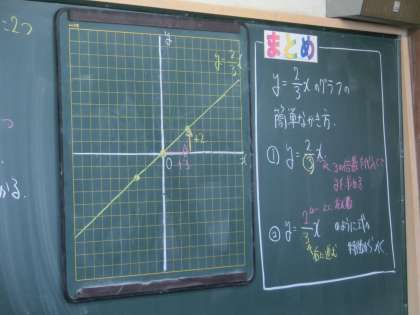 に2つ
y
y=2/3x
+2
+3
O
x
かる.
まとめ
y=2/3xのグラフの
簡単なかき方.
① y=2/3x
3の倍数を代入して
yを求める
② y=2/3x のように2つの
右に進む